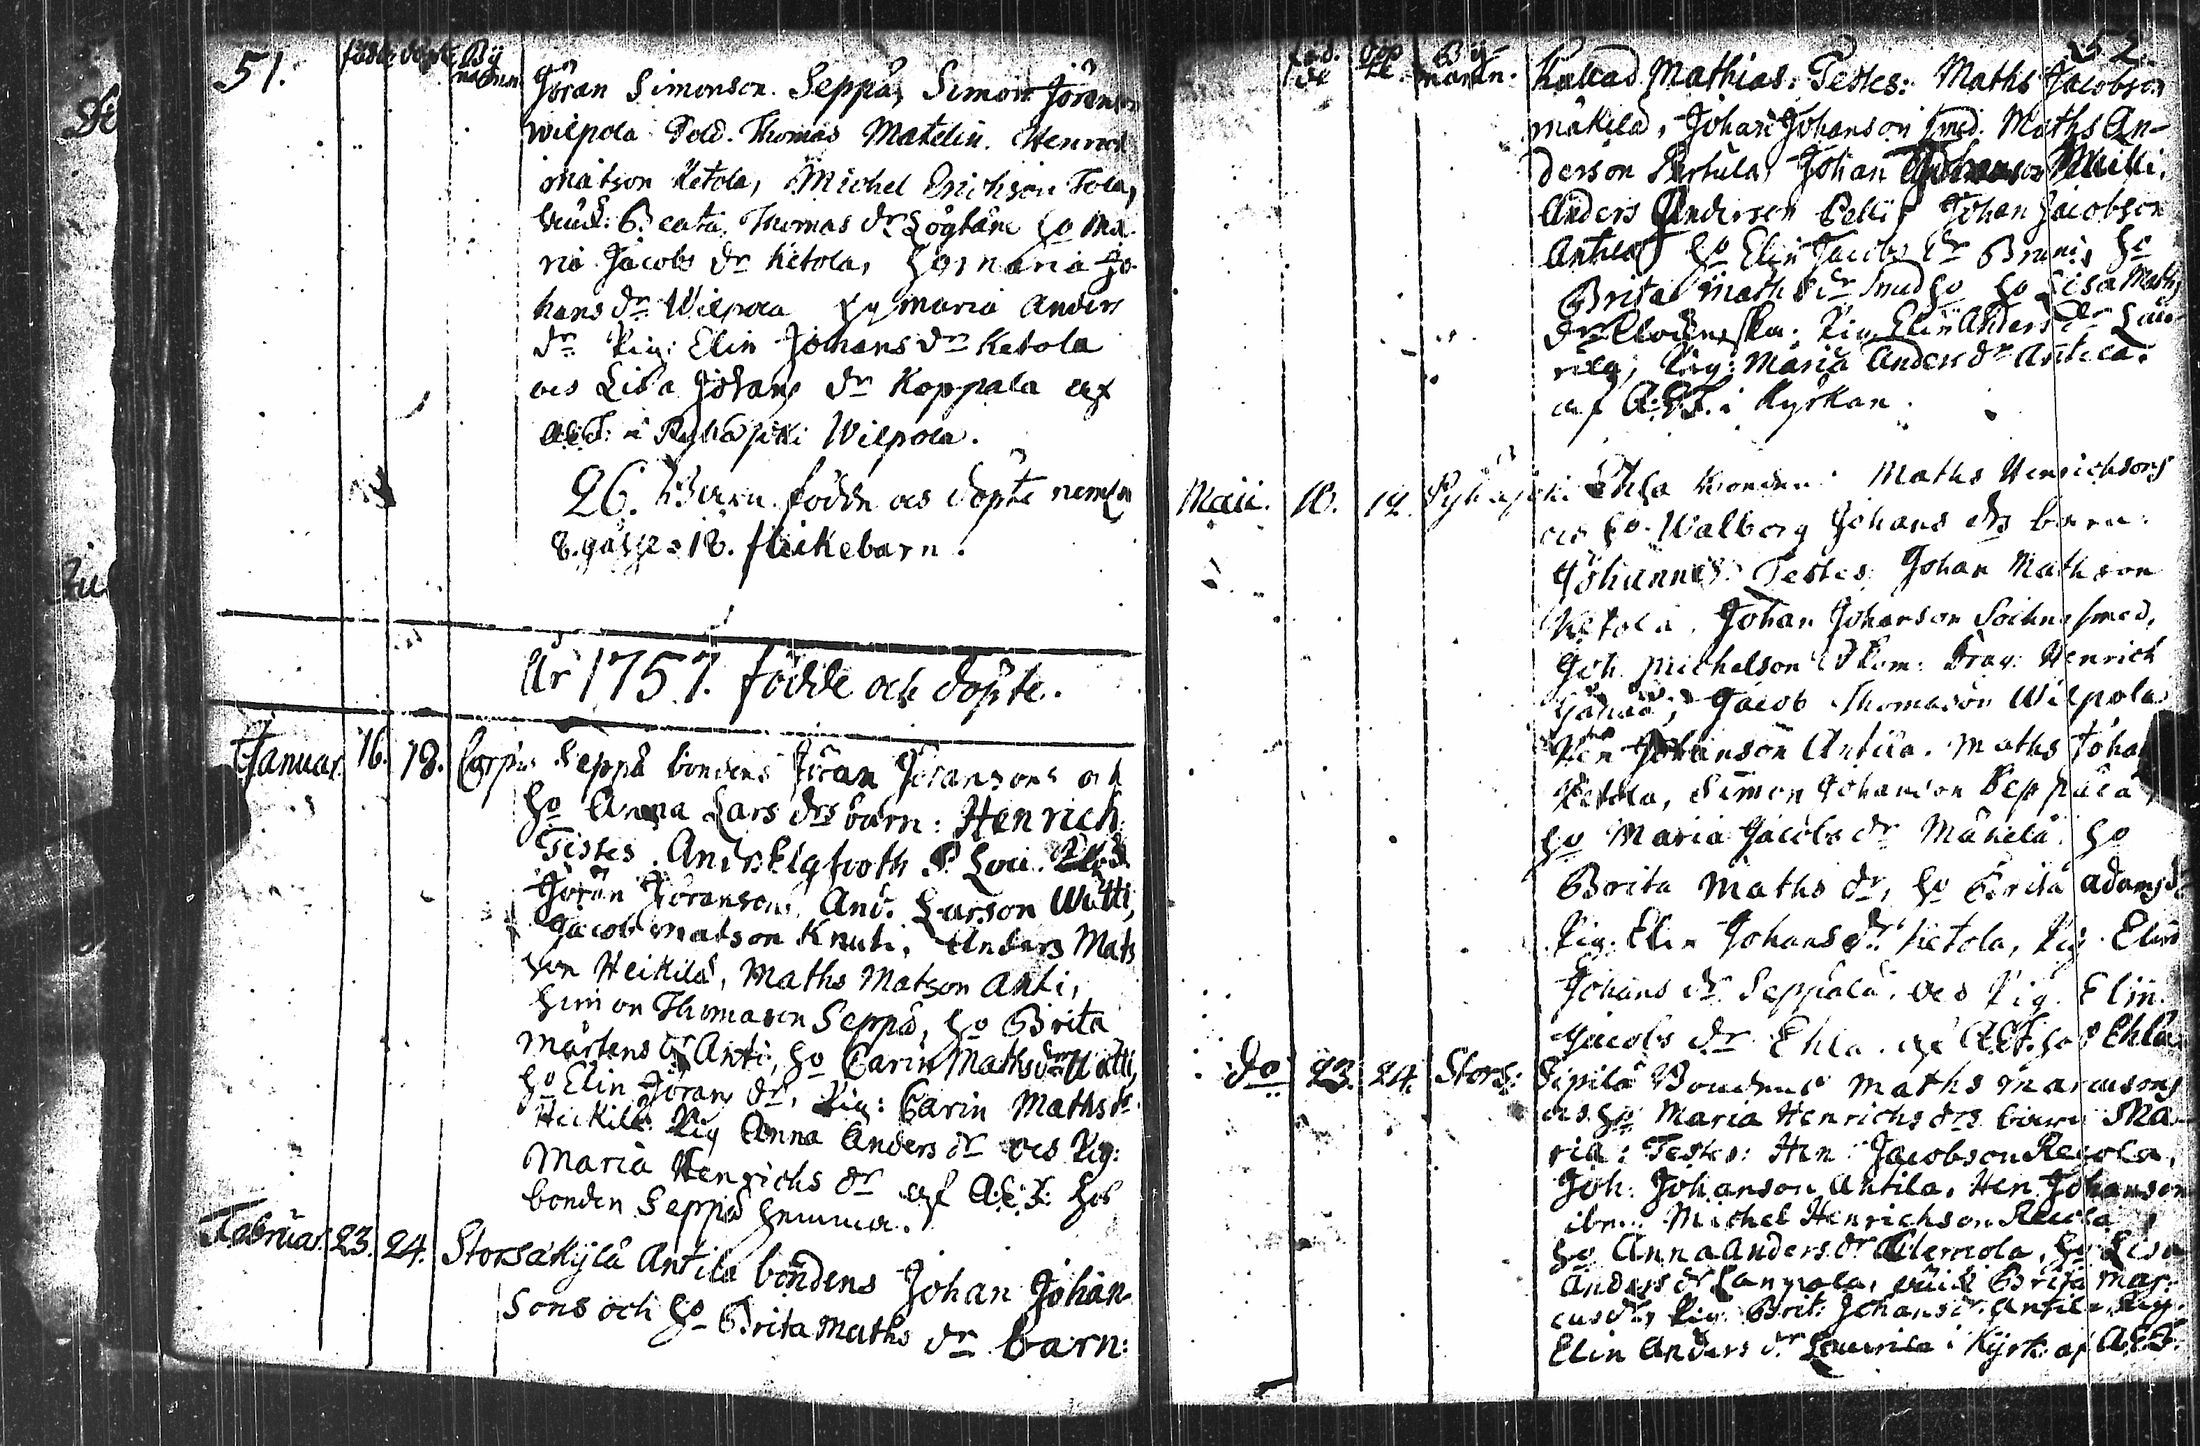 51. födde döpte By
namn
Jöran Simonson Seppä, Simon Jöranson
Wilpola Sold. Thomas Matelin. Henrich
matson Ketola, Michel Erichson Tola,
hust: Beata Thomas dr Ho Ma-
ria Jacobs dr Ketola, Ho maria Jo-
hans dr Wilpola Ho maria Anders
dr Pig: Elin Johans dr Ketola
och Lisa Johans dr Koppala af
A.E.F. i Pyhäjoki Wilpola.
26. Barn födde och döpte neml.
8. gåsse 18. flickebarn.
År 1757. födde och döpte.
Januar. 16. 18. Corpis Seppä bondens Jöran Jöransons och
Ho Anna Lars drs barn: Henrich.
Testes. And. Elgfooth P. Loci.
Jöran Jöranson, And. Larson Uutti,
Jacob matson Knuti, Anders Mats
son Heikilä, Maths Matson Anti,
Simon Thomason Seppä, Ho Brita
Mårtens dr Anti, Ho Carin Maths dr Uutti,
Ho Elin Jörans dr, Pig: Carin Maths dr
Heikilä Pig Anna Anders dr och Pig:
Maria Henrichs dr af A.E.F. hos
bonden Seppä hemma.
Februar. 23. 24. Storsäkylä Antila bondens Johan Johan-
sons och Ho Brita Maths dr barn:
52.
föd- döp By-
de te namn.
Kallad Mathias: Testes: Maths Jacobson
mäkilä, Johan Johanson smed. Maths An-
derson Pertula, Johan Mulli.
Anders Anderson Pelti, Johan Jacobson
Antila, Ho Elin Jacobs dr Brunis, Ho
Brita Maths dr smed Ho Ho Lisa Maths
dr Pig. Elin Anders dr Lau-
rila, Pig: Maria Anders dr Antila.
af A.E.F. i Kyrkan.
Maii. 10. 12. Pyhäjoki Ehla bonden Maths Henrichsons
och Ho Walborg Johans drs barn:
Johannes. Testes: Johan Mathson
Ketola, Johan Johanson Sockne smed,
Joh. Michelson Skom: Drag: Henrich
Jacob Thomason Wilpola
Hen Johanson Antila. Maths Johan
Ketola, Simon Johanson Seppälä
Ho Maria Jacobs dr Mäkelä. Ho
Brita Maths dr, Ho Brita Adams dr
Pig. Elin Johans dr Ketola, Pig. Elin
Johans dr Seppälä. och Pig. Elin
Jacobs dr Ehla. af A.E.F. hos Ehla
do 23. 24. Stors: Pipilä Bondens Maths Marcusons
och Ho Maria Henrichs drs barn Ma-
ria: Testes: Hen: Jacobson Recola,
Joh: Johanson Antila, Hen Johanson
ibm. Michel Henrichson Recola
Ho Anna Anders dr Clemola, Ho Lisa
Anders dr Lampola, hust Brita Mar-
cus dr, Pig Brit: Johans dr Antila, Pig:
Elin Anders dr Laurila i Kyrk: af A.E.F.